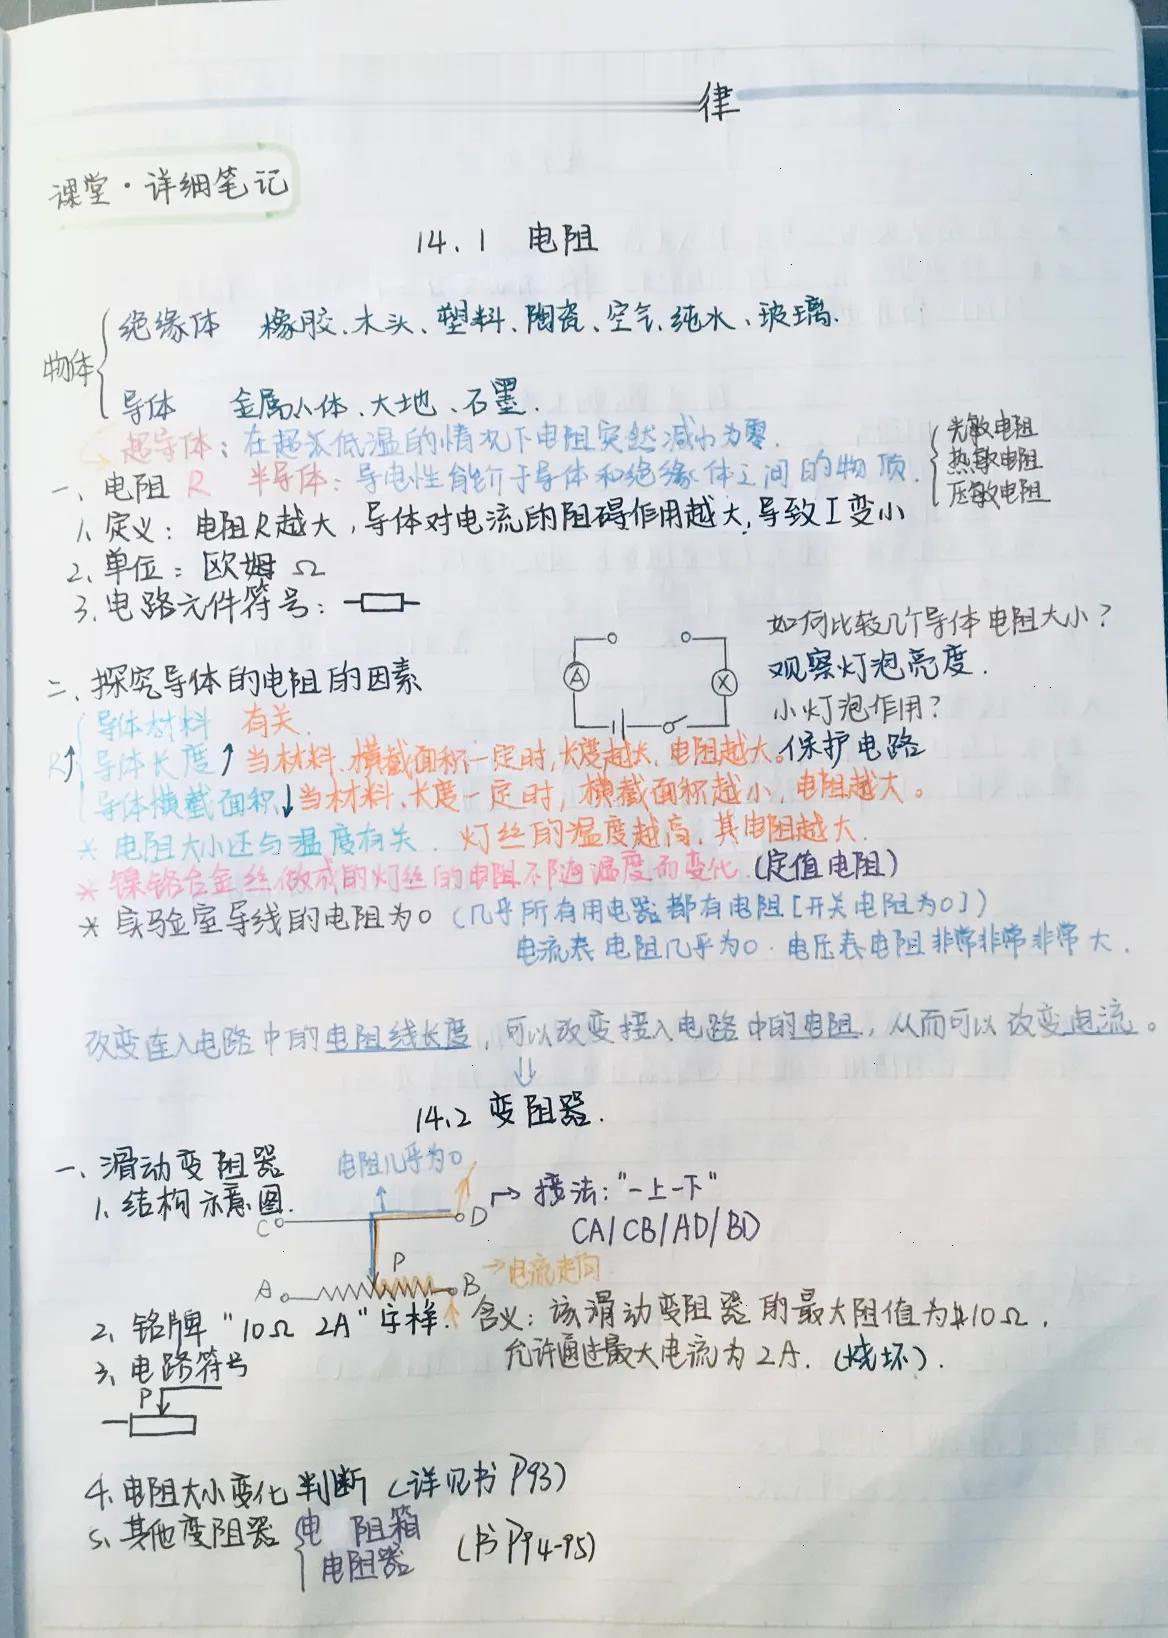 律
课堂·详细笔记
14.1 电阻
物体
绝缘体 橡胶、木头、塑料、陶瓷、空气、纯水、玻璃.
导体 金属、人体、大地、石墨.
超导体：在超低温的情况下电阻突然减小为零.
半导体：导电性能介于导体和绝缘体之间的物质.
光敏电阻
热敏电阻
压敏电阻
一、电阻 R
1、定义：电阻R越大，导体对电流的阻碍作用越大，导致I变小
2、单位：欧姆 Ω
3、电路元件符号：
A
X
如何比较几个导体电阻大小？
观察灯泡亮度.
小灯泡作用？
保护电路
二、探究导体的电阻的因素
R↑
导体材料 有关.
导体长度↑ 当材料、横截面积一定时，长度越长，电阻越大。
导体横截面积↓ 当材料、长度一定时，横截面积越小，电阻越大。
* 电阻大小还与温度有关. 灯丝的温度越高，其电阻越大.
* 镍铬合金丝做成的灯丝的电阻不随温度而变化.(定值电阻)
* 实验室导线的电阻为0 (几乎所有用电器都有电阻[开关电阻为0])
电流表电阻几乎为0. 电压表电阻非常非常非常大.
改变连入电路中的电阻线长度，可以改变接入电路中的电阻，从而可以改变电流。
⇓
14.2 变阻器.
一、滑动变阻器
1、结构示意图.
电阻几乎为0
C D
P
A B
→接法："一上一下"
CA/CB/AD/BD
→电流走向
2、铭牌"10Ω 2A"字样. 含义：该滑动变阻器的最大阻值为10Ω.
允许通过最大电流为2A. (烧坏).
3、电路符号
P
4、电阻大小变化判断 (详见书P93)
5、其他变阻器
电阻箱
电阻器
(书P94-95)